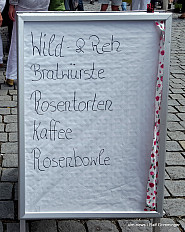 Wild- & Reh
Bratwürste
Rosentorten
Kaffee
Rosenbowle